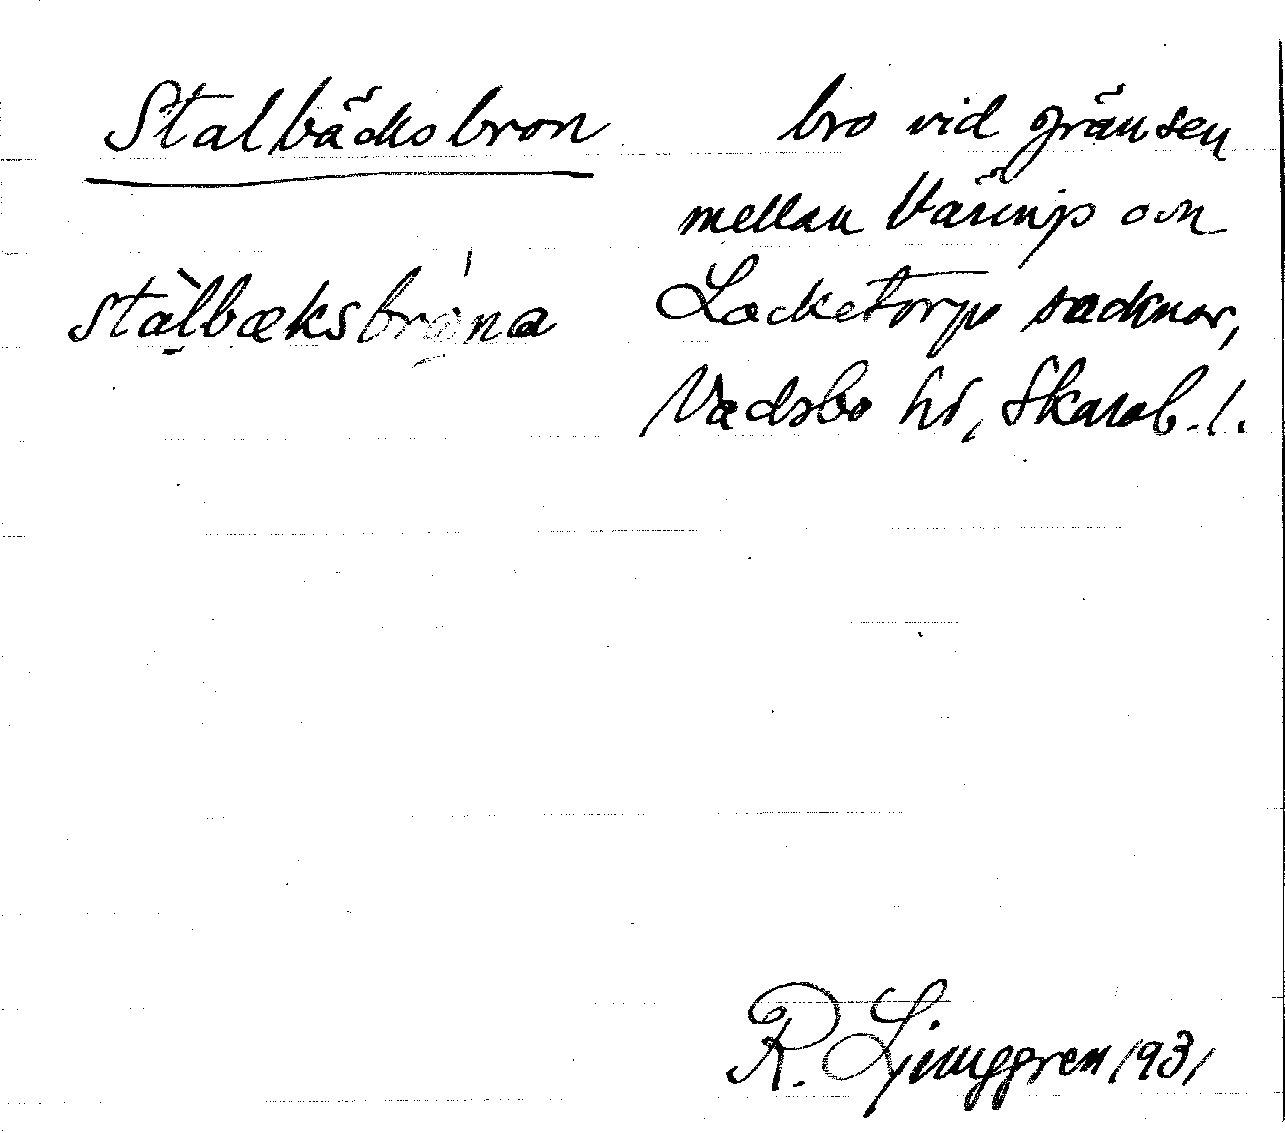 Stalbäcksbron
stàlbæksbrona
bro vid gränsen
mellan Värings och
Locketorps socknar,
Vadsbo hd, Skarab. l.
R. Ljunggren 1931